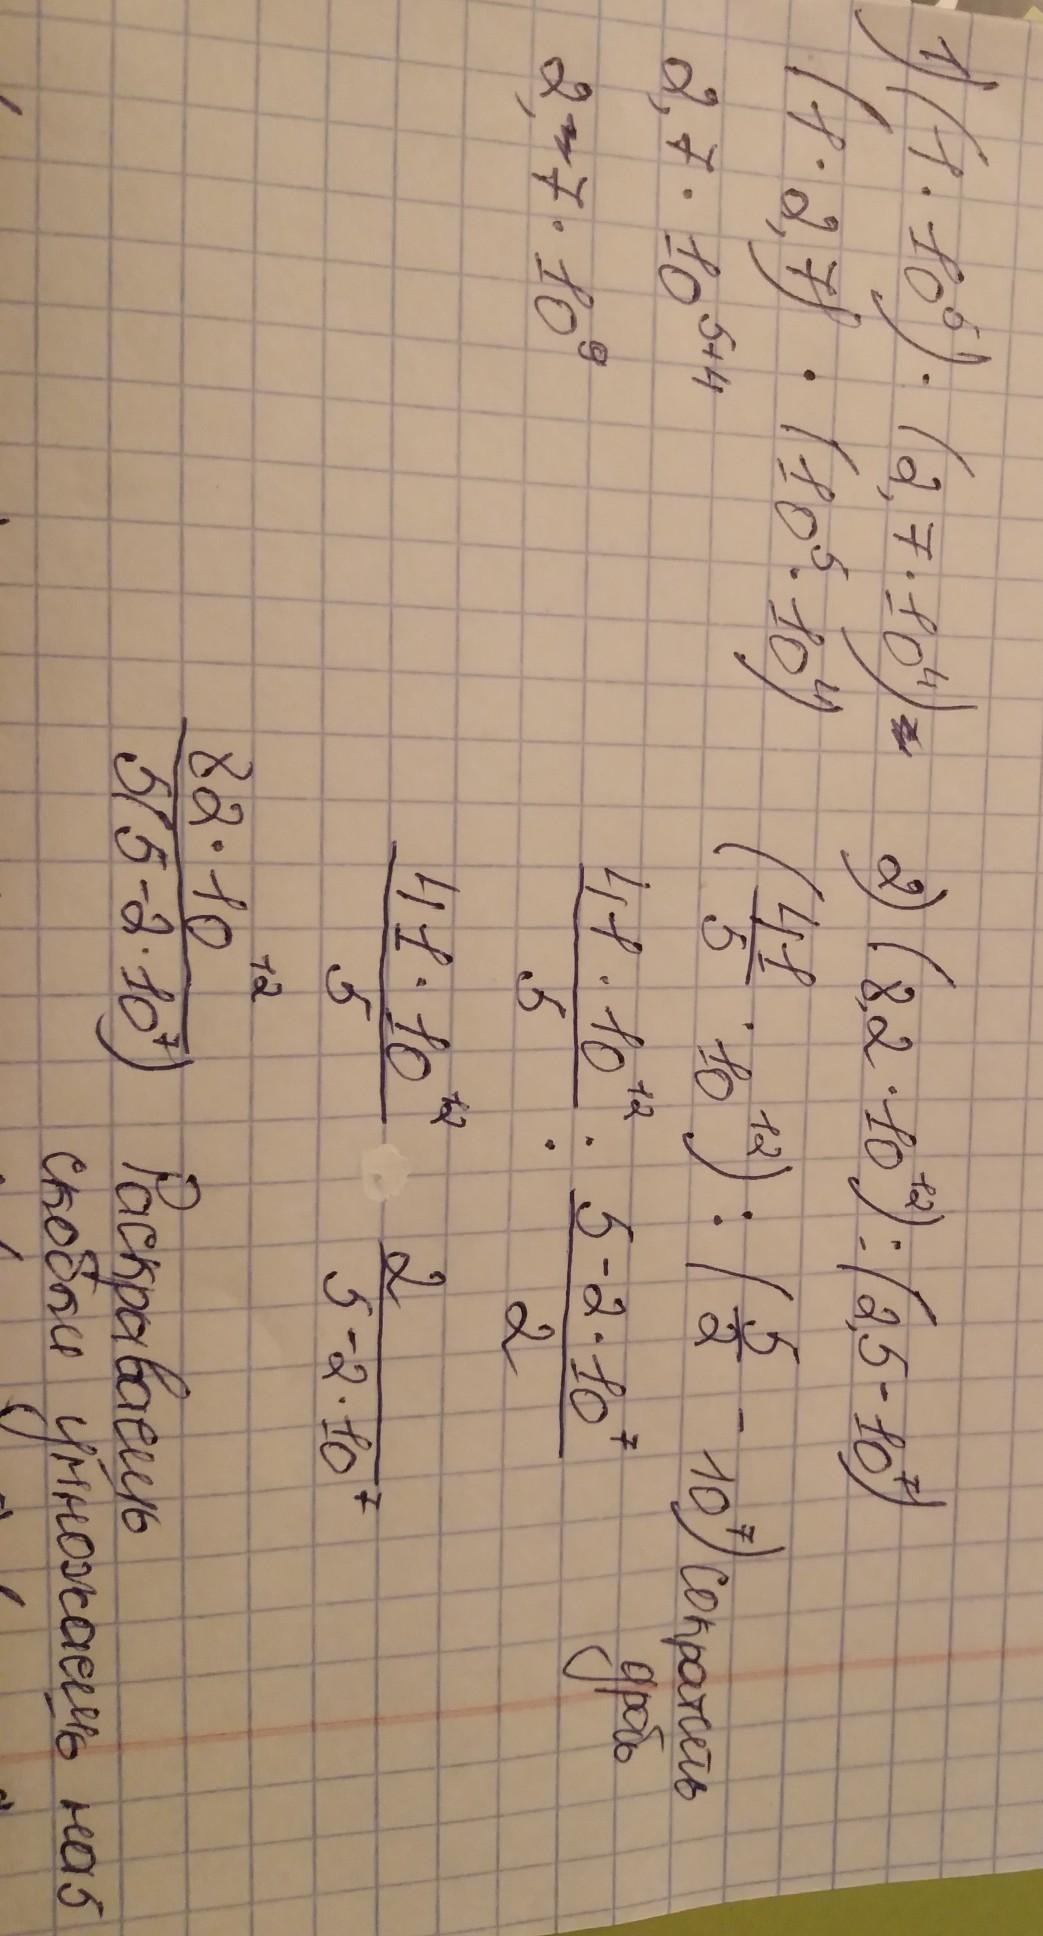 1) (1 · 10⁵) · (2,7 · 10⁴) =
(1 · 2,7) · (10⁵ · 10⁴)
2,7 · 10⁵⁺⁴
2,7 · 10⁹
2) (8,2 · 10¹²) : (2,5 - 10⁷)
(41/5 · 10¹²) : (5/2 - 10⁷) Сократить
дробь
41 · 10¹²/5 : 5 - 2 · 10⁷/2
41 · 10¹²/5 2/5 - 2 · 10⁷
82 · 10¹²/5(5 - 2 · 10⁷) Раскраваешь
скобки умножаешь на 5